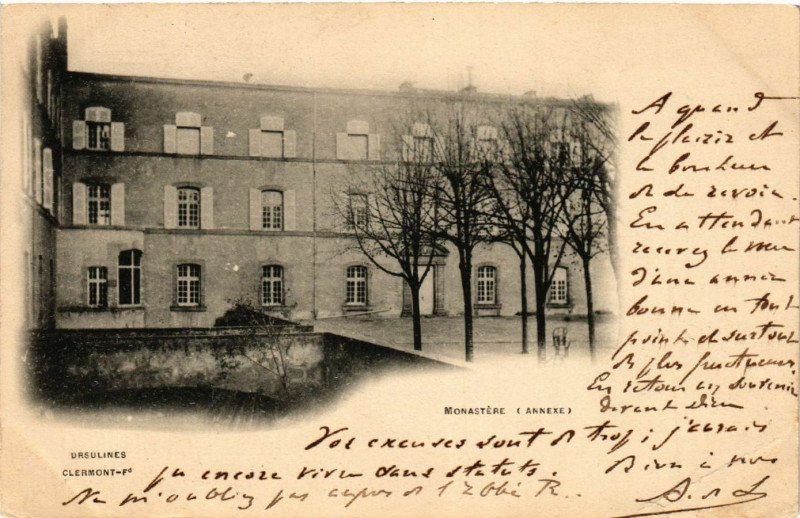 A quand
le plaisir et
le bonheur
de se revoir.
En attendant
recevez le vœu
d'une année
bonne en tout
point et surtout
des plus fructueuses.
En retour un souvenir
devant Dieu
MONASTÈRE (ANNEXE)
URSULINES
CLERMONT-Fd
Vos excuses sont de trop ; j'aurais
pu encore vivre sans statuts.
Ne m'oubliez pas auprès de l'Abbé R..
Bien à vous
A. de L